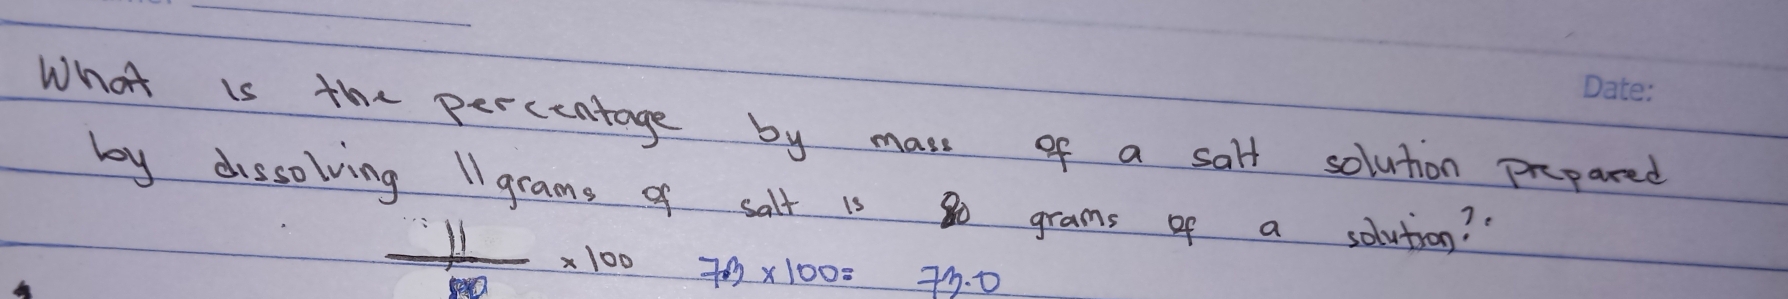 Date:
What is the percentage by mass of a salt solution prepared
by dissolving 11 grams of salt is 80 grams of a solution?
11 × 100 73 × 100= 73.0